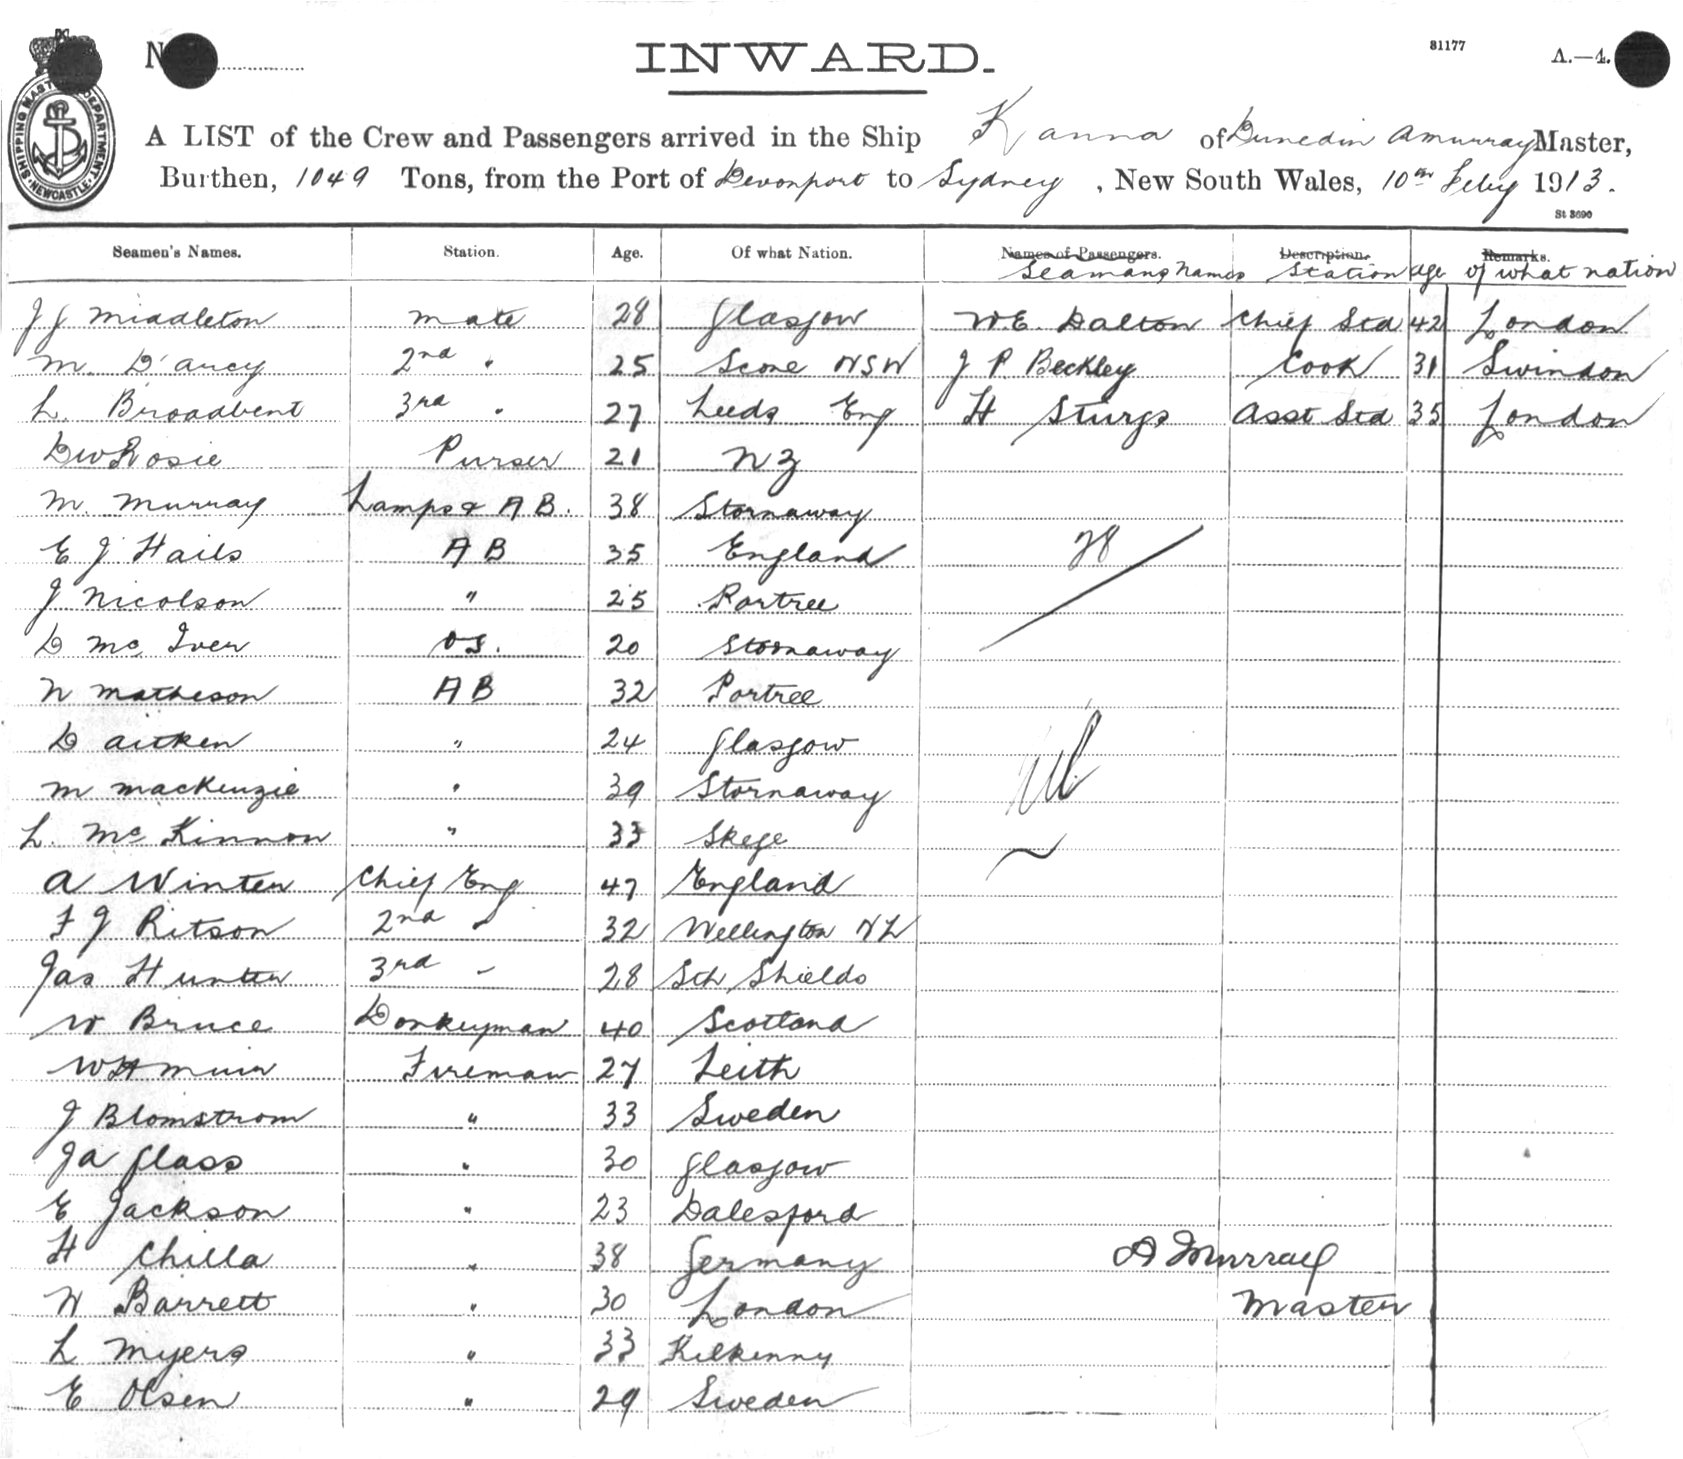 No
INWARD.
81177
A.—4.
SHIPPING MASTER'S DEPARTMENT NEWCASTLE
A LIST of the Crew and Passengers arrived in the Ship Kanna of Dunedin A Murray Master,
Burthen, 1049 Tons, from the Port of Devonport to Sydney, New South Wales, 10th Feby 1913.
St 3690
Seamen's Names. Station. Age. Of what Nation. Names of Passengers. Description. Remarks.
Seamans Names Station age of what nation
J J Middleton mate 28 Glasgow W.E. Dalton Chief Std 42 London
M. D'arcy 2nd " 25 Scone NSW J P Beckley Cook 31 Swindon
L. Broadbent 3rd " 27 Leeds Eng H Sturgs Asst Std 35 London
D W Rosie Purser 21 N Z
M. Murray Lamps & A B. 38 Stornaway
E J Hails A B 35 England 28
J Nicolson " 25 Portree
D Mc Iver OS. 20 Stornaway
N Matheson A B 32 Portree
D aitken " 24 Glasgow
M Mackenzie " 39 Stornaway
L. Mc Kinnon " 33 Skege
A Winter Chief Eng 47 England
F J Ritson 2nd " 32 Wellington NZ
Jas Hunter 3rd " 28 Sth Shields
W Bruce Donkeyman 40 Scotland
W H Muir Fireman 27 Leith
J Blomstrom " 33 Sweden
J A Glass " 30 Glasgow
E Jackson " 23 Dalesford
H Chilla " 38 Germany A Murray
W Barrett " 30 London Master
L Myers " 33 Kilkenny
E Olsen " 29 Sweden